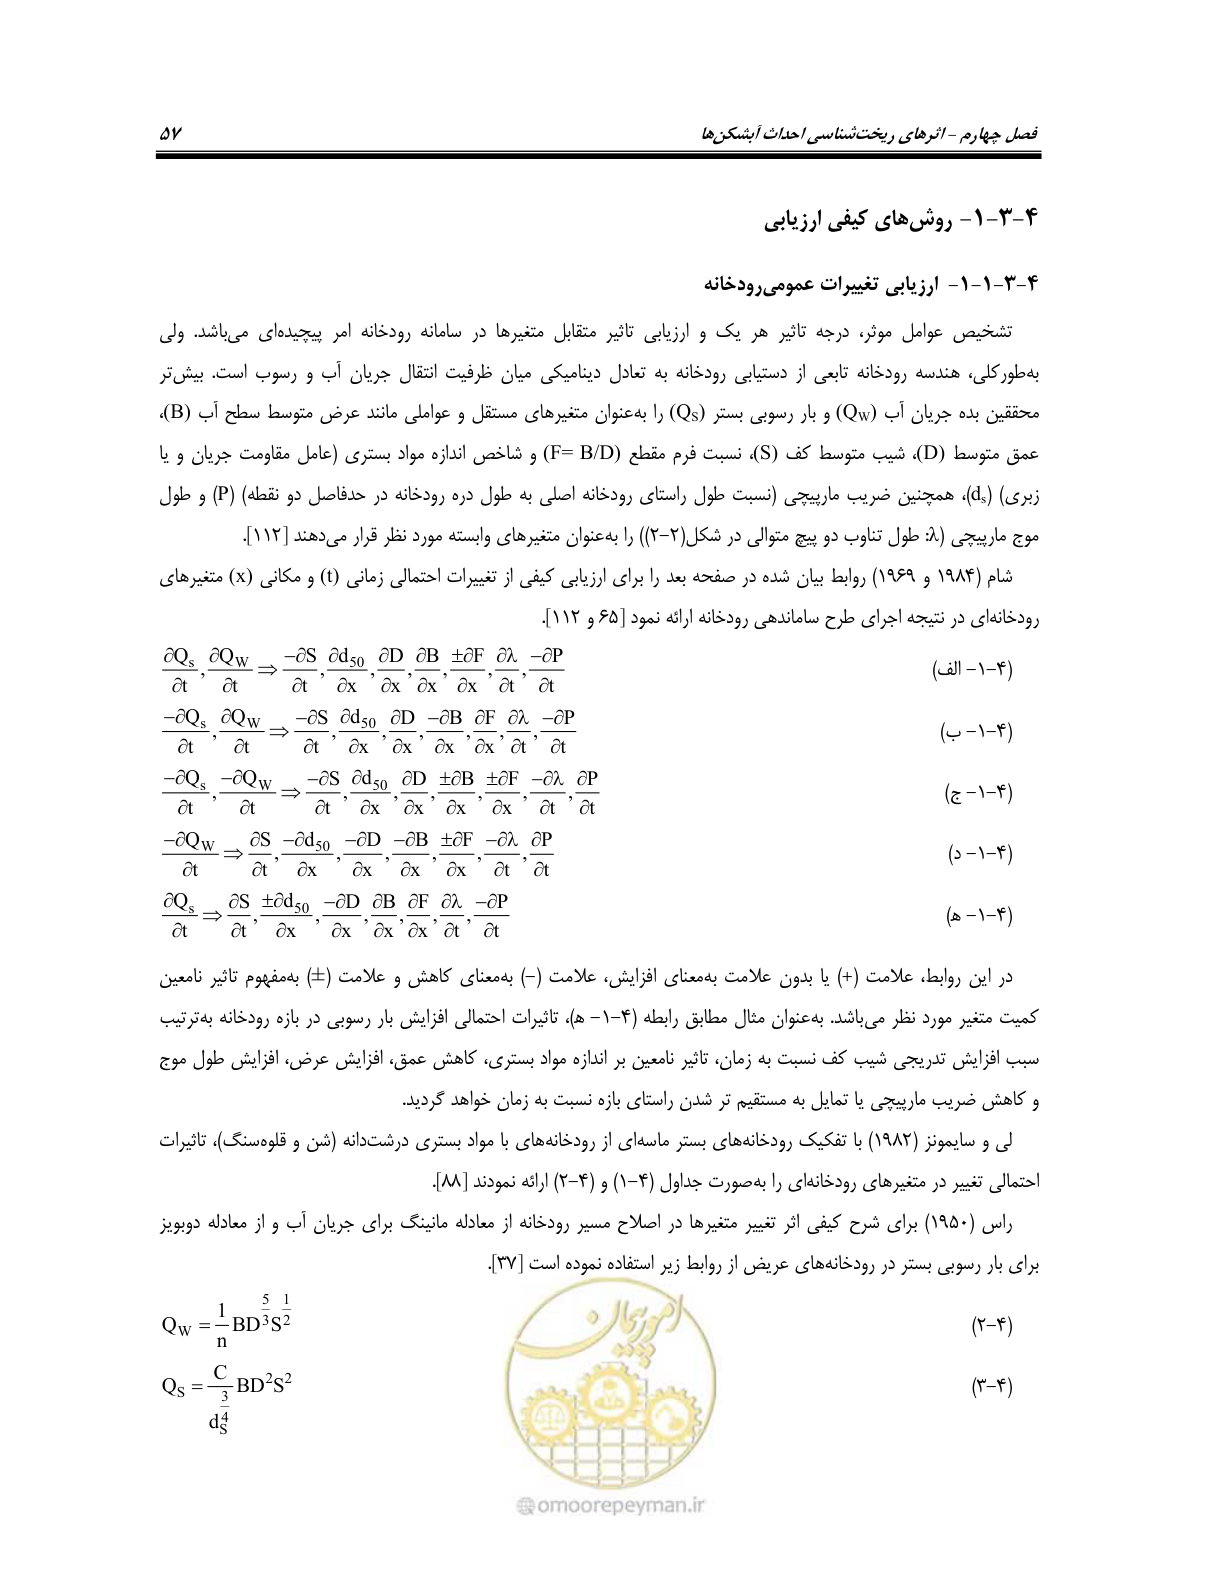 فصل چهارم – اثرهای ریخت‌شناسی احداث آبشکن‌ها ۵۷
۴-۳-۱- روش‌های کیفی ارزیابی
۴-۳-۱-۱- ارزیابی تغییرات عمومی‌رودخانه
تشخیص عوامل موثر، درجه تاثیر هر یک و ارزیابی تاثیر متقابل متغیرها در سامانه رودخانه امر پیچیده‌ای می‌باشد. ولی
به‌طورکلی، هندسه رودخانه تابعی از دستیابی رودخانه به تعادل دینامیکی میان ظرفیت انتقال جریان آب و رسوب است. بیش‌تر
محققین بده جریان آب (QW) و بار رسوبی بستر (QS) را به‌عنوان متغیرهای مستقل و عواملی مانند عرض متوسط سطح آب (B)،
عمق متوسط (D)، شیب متوسط کف (S)، نسبت فرم مقطع (F= B/D) و شاخص اندازه مواد بستری (عامل مقاومت جریان و یا
زبری) (ds)، همچنین ضریب مارپیچی (نسبت طول راستای رودخانه اصلی به طول دره رودخانه در حدفاصل دو نقطه) (P) و طول
موج مارپیچی (λ: طول تناوب دو پیچ متوالی در شکل(۲-۲)) را به‌عنوان متغیرهای وابسته مورد نظر قرار می‌دهند [۱۱۲].
شام (۱۹۸۴ و ۱۹۶۹) روابط بیان شده در صفحه بعد را برای ارزیابی کیفی از تغییرات احتمالی زمانی (t) و مکانی (x) متغیرهای
رودخانه‌ای در نتیجه اجرای طرح ساماندهی رودخانه ارائه نمود [۶۵ و ۱۱۲].
(۴-۱- الف) ∂Qs/∂t , ∂QW/∂t ⇒ −∂S/∂t , ∂d50/∂x , ∂D/∂x , ∂B/∂x , ±∂F/∂x , ∂λ/∂t , −∂P/∂t
(۴-۱- ب) −∂Qs/∂t , ∂QW/∂t ⇒ −∂S/∂t , ∂d50/∂x , ∂D/∂x , −∂B/∂x , ∂F/∂x , ∂λ/∂t , −∂P/∂t
(۴-۱- ج) −∂Qs/∂t , −∂QW/∂t ⇒ −∂S/∂t , ∂d50/∂x , ∂D/∂x , ±∂B/∂x , ±∂F/∂x , −∂λ/∂t , ∂P/∂t
(۴-۱- د) −∂QW/∂t ⇒ ∂S/∂t , −∂d50/∂x , −∂D/∂x , −∂B/∂x , ±∂F/∂x , −∂λ/∂t , ∂P/∂t
(۴-۱- ه) ∂Qs/∂t ⇒ ∂S/∂t , ±∂d50/∂x , −∂D/∂x , ∂B/∂x , ∂F/∂x , ∂λ/∂t , −∂P/∂t
در این روابط، علامت (+) یا بدون علامت به‌معنای افزایش، علامت (–) به‌معنای کاهش و علامت (±) به‌مفهوم تاثیر نامعین
کمیت متغیر مورد نظر می‌باشد. به‌عنوان مثال مطابق رابطه (۴-۱- ه)، تاثیرات احتمالی افزایش بار رسوبی در بازه رودخانه به‌ترتیب
سبب افزایش تدریجی شیب کف نسبت به زمان، تاثیر نامعین بر اندازه مواد بستری، کاهش عمق، افزایش عرض، افزایش طول موج
و کاهش ضریب مارپیچی یا تمایل به مستقیم تر شدن راستای بازه نسبت به زمان خواهد گردید.
لی و سایمونز (۱۹۸۲) با تفکیک رودخانه‌های بستر ماسه‌ای از رودخانه‌های با مواد بستری درشت‌دانه (شن و قلوه‌سنگ)، تاثیرات
احتمالی تغییر در متغیرهای رودخانه‌ای را به‌صورت جداول (۴-۱) و (۴-۲) ارائه نمودند [۸۸].
راس (۱۹۵۰) برای شرح کیفی اثر تغییر متغیرها در اصلاح مسیر رودخانه از معادله مانینگ برای جریان آب و از معادله دوبویز
برای بار رسوبی بستر در رودخانه‌های عریض از روابط زیر استفاده نموده است [۳۷].
(۴-۲) QW = 1/n BD^5/3 S^1/2
(۴-۳) QS = C/dS^3/4 BD^2S^2
امور پیمان
@omoorepeyman.ir